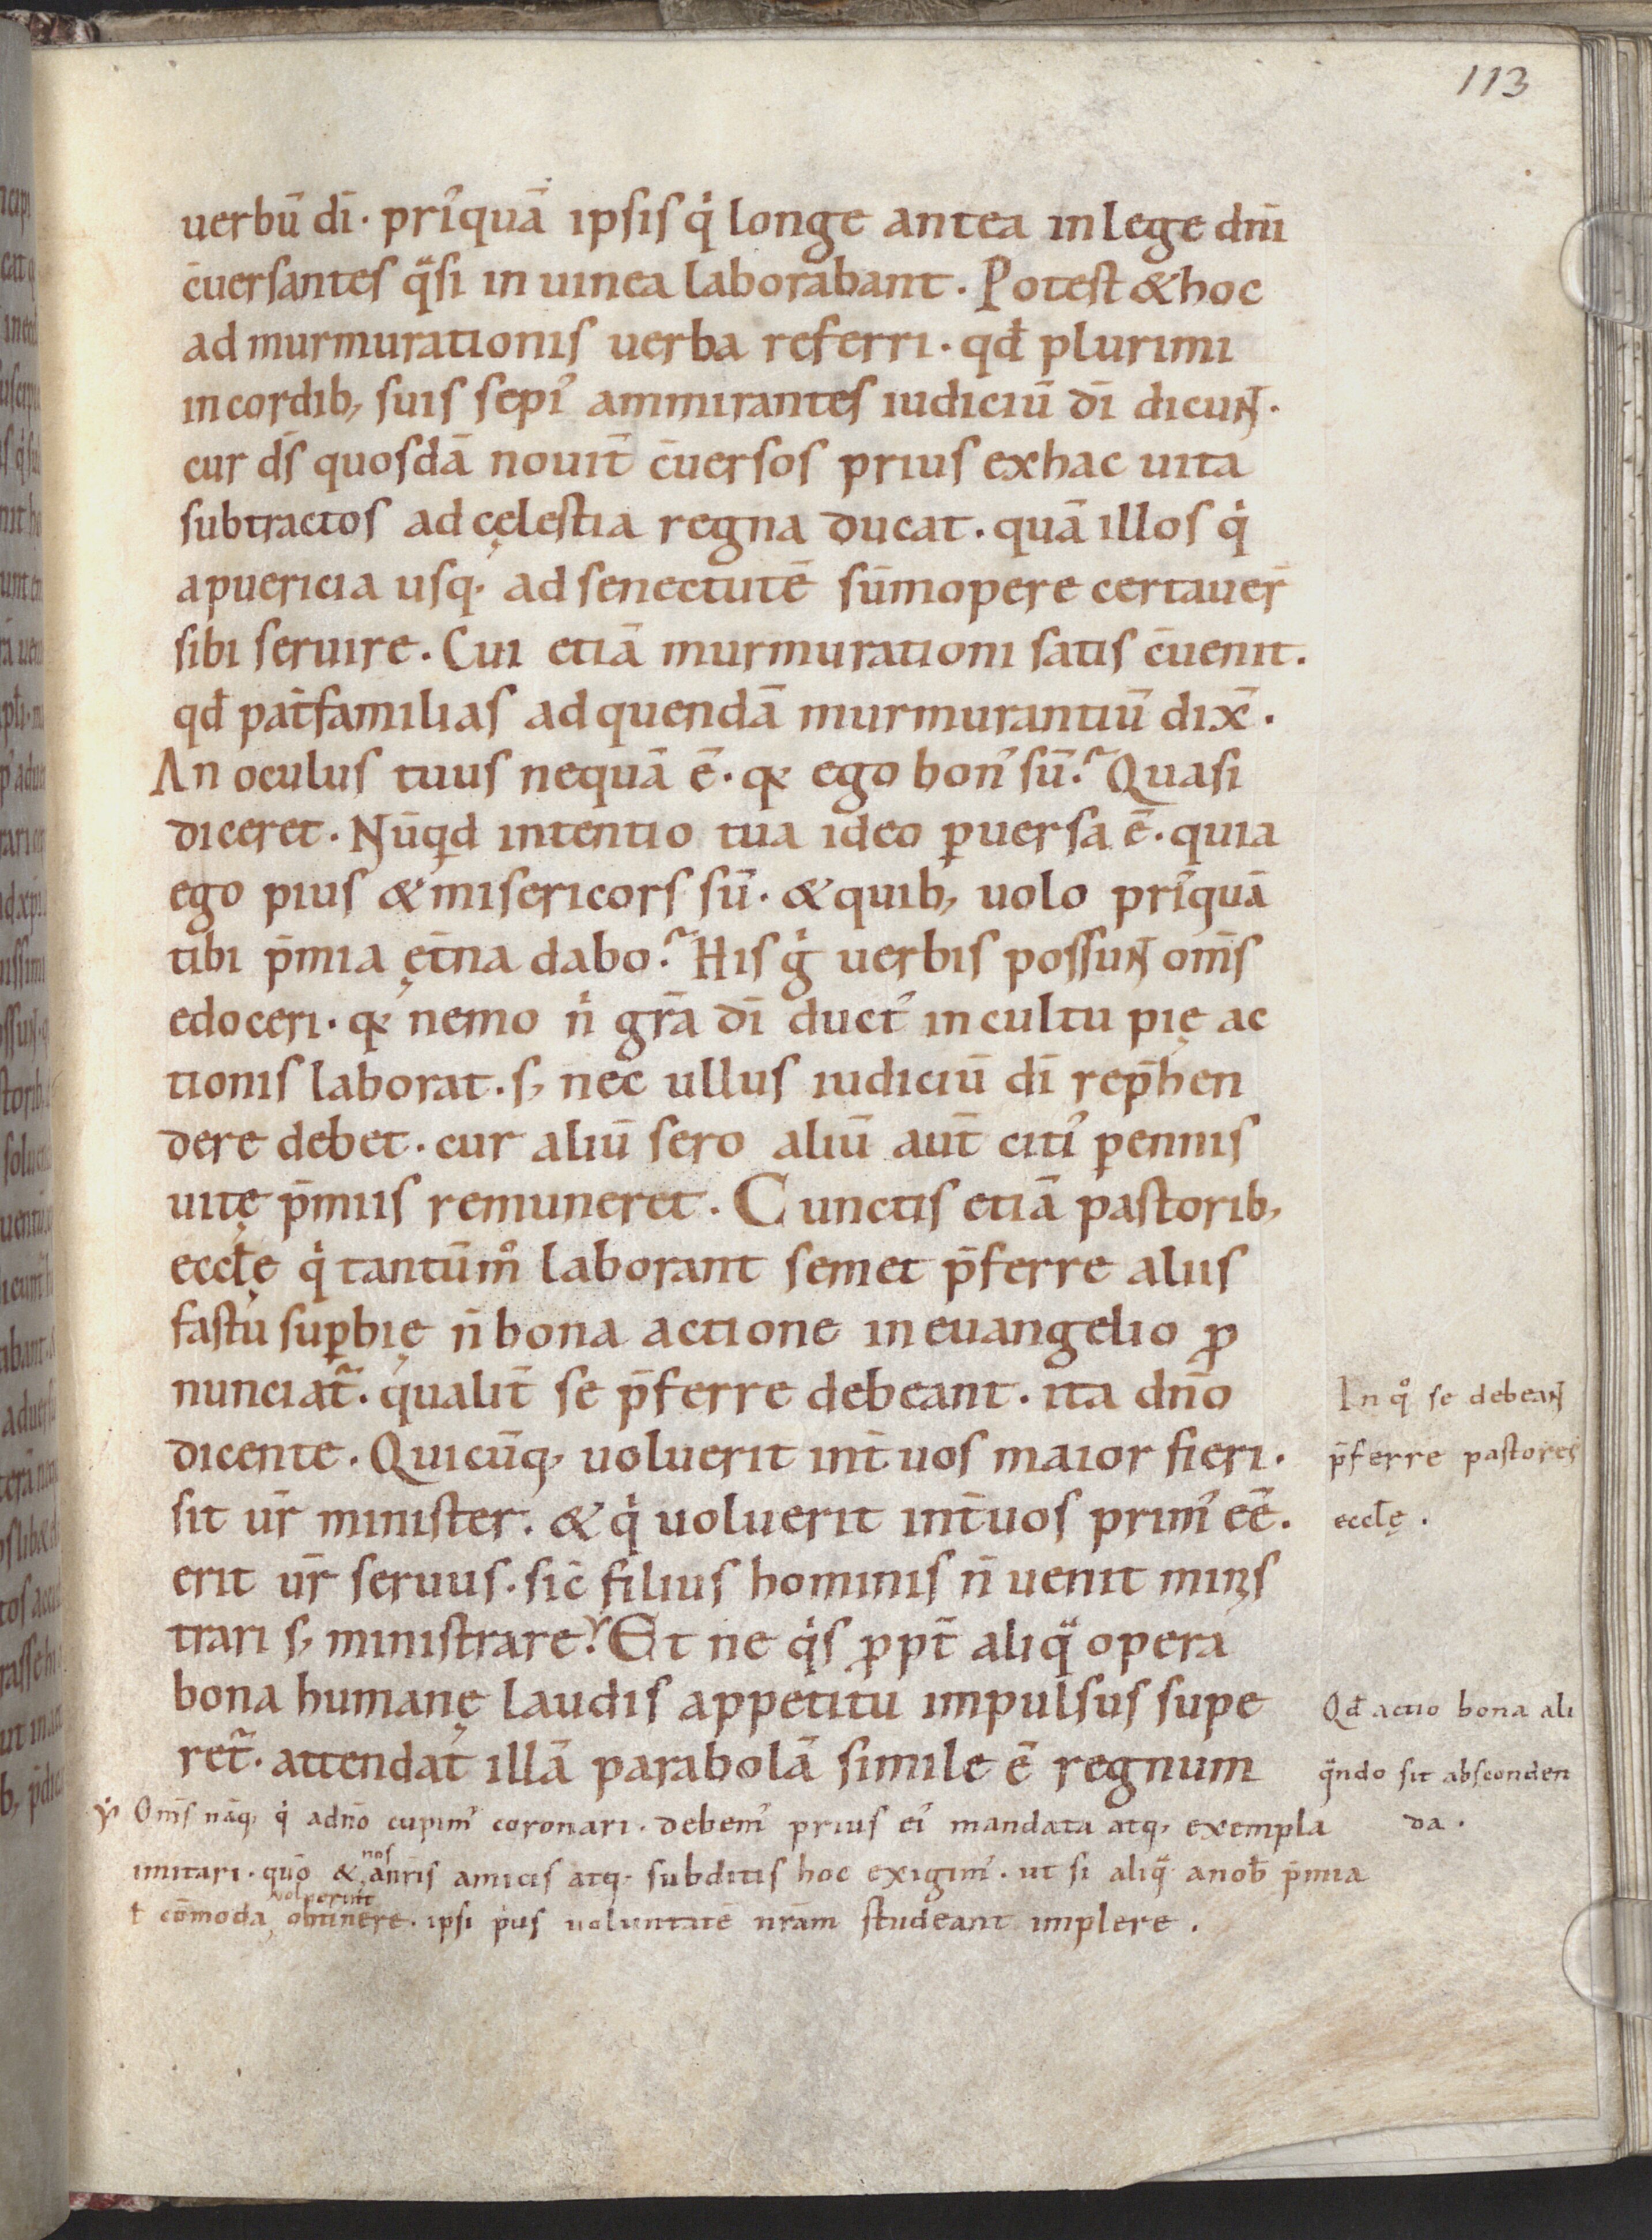 113
uerbū dī · pri᷒quā ipsis qͥ longe antea in lege dn̄i
c̄uersantes qᷓsi in uinea laborabant . Potest & hoc
ad murmurationis uerba referri · qđ plurimi
in cordib; suis sepi᷒ ammirantes iudiciū dī dicunt ·
cur d̄s quosdā nouit̄ c̄uersos prius ex hac uita
subtractos ad cęlestia regna ducat · quā illos qͥ
a puericia usq; ad senectutē sūmopere certauer̄
sibi seruire . Cui etiā murmurationi satis c̄uenit .
qđ pat̄familias ad quendā murmurantiū dix̄ .
An oculus tuus nequā ē · qꝛ ego bon᷒ sū ? Quasi
diceret . Nūqd intentio tua ideo ꝑuersa ē · quia
ego pius & misericors sū · & quib; uolo pri᷒quā
tibi p̄mia ęt̄na dabo ? His gͥ uerbis possunt om̄s
edoceri · qꝛ nemo nͥ gr̄a dī duct᷒ in cultu pię ac
tionis laborat · s; nec ullus iudiciū dī rep̄hen
dere debet · cur aliū sero aliū aut̄ citi᷒ ꝑennis
uitę p̄miis remuneret . Cunctis etiā pastorib;
eccl̄ę qͥ tantūmͦ laborant semet p̄ferre aliis
fastu suꝑbię n̄ bona actione in euangelio ꝓ
nunciat᷑ · qualit̄ se p̄ferre debeant · ita dn̄o
dicente . Quicūq; uoluerit int̄ uos maior fieri .
sit ur̄ minister . & qͥ uoluerit int̄ uos prim᷒ eē .
erit ur̄ seruus · sic̄ filius hominis n̄ uenit minis
trari s; ministrare . Et ne qͥs ꝓpt̄ aliqᷓ opera
bona humanę laudis appetitu impulsus supe
ret᷑ · attendat illā parabolā simile ē regnum
In qͦ se debeant
p̄ferre pastores
eccl̄ę .
Qđ actio bona ali
qᷓndo sit absconden
da .
Om̄s nāq; qͥ a dn̄o cupim᷒ coronari · debem᷒ prius ei᷒ mandata atq; exempla
nos
imitari · quō & a nr̄is amicis atq; subditis hoc exigim᷒ · ut si aliqᷓ a nob̄ p̄mia
uoluerint
ł cōmoda obtinere · ipsi pͥus uoluntatē nr̄am studeant implere .